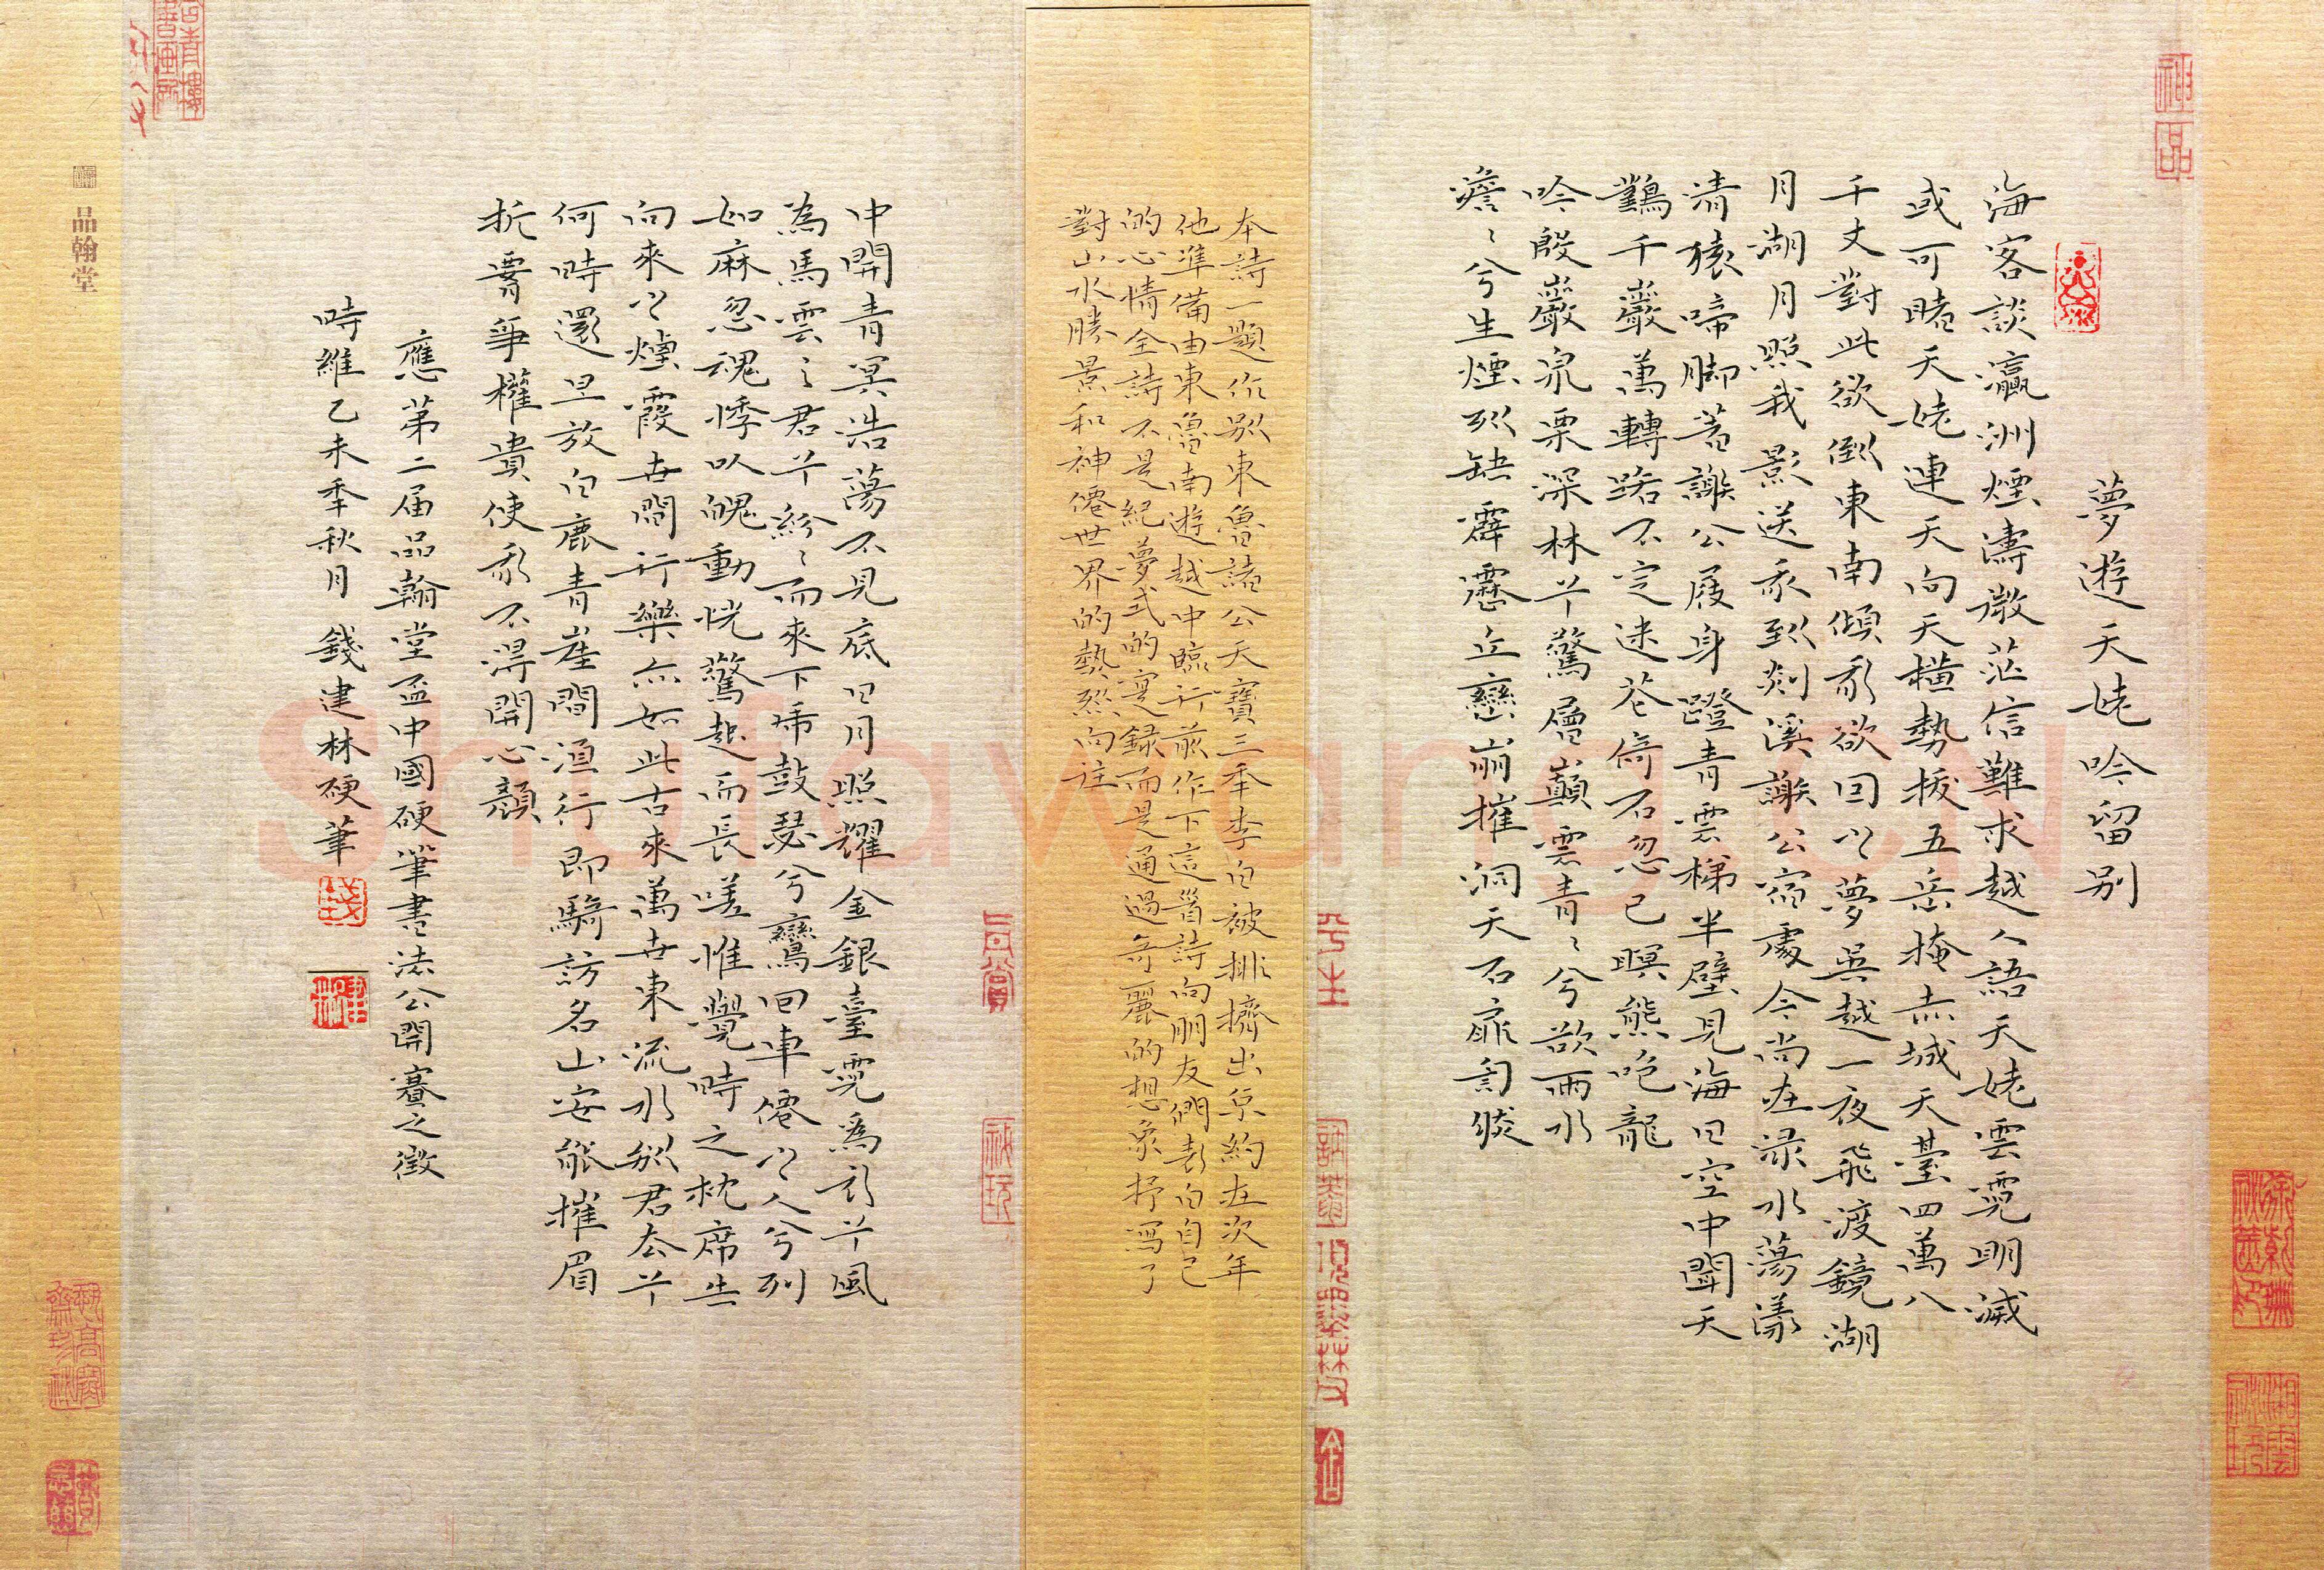 夢遊天姥吟留別
海客談瀛洲煙濤微茫信難求越人語天姥雲霓明滅
或可睹天姥連天向天橫勢拔五岳掩赤城天臺四萬八
千丈對此欲倒東南傾我欲回之夢吳越一夜飛渡鏡湖
月湖月照我影送我到剡溪謝公宿處今尚在淥水蕩漾
清猿啼脚著謝公屐身蹬青雲梯半壁見海日空中聞天
鷄千巖萬轉路不定迷花倚石忽已暝熊咆龍
吟殷巖泉栗深林兮驚層巔雲青〻兮欲雨水
澹〻兮生煙列缺霹靂丘巒崩摧洞天石扉訇然
本詩一題作別東魯諸公天寶三年李白被排擠出京約在次年
他準備由東魯南遊越中臨行前作下這首詩向朋友們表白自己
的心情全詩不是紀夢式的實録而是通過奇麗的想象抒寫了
對山水勝景和神僊世界的熱烈向往
中開青冥浩蕩不見底日月照耀金銀臺霓為衣兮風
為馬雲之君兮紛〻而來下虎鼓瑟兮鸞回車僊之人兮列
如麻忽魂悸以魄動恍驚起而長嗟惟覺時之枕席失
向來之煙霞世間行樂亦如此古來萬世東流水別君去兮
何時還且放白鹿青崖間須行即騎訪名山安能摧眉
折腰事權貴使我不得開心顏
應第二届品翰堂盃中國硬筆書法公開賽之徵
時維乙未季秋月 錢建林硬筆
品翰堂
神品
Shufawang.CN